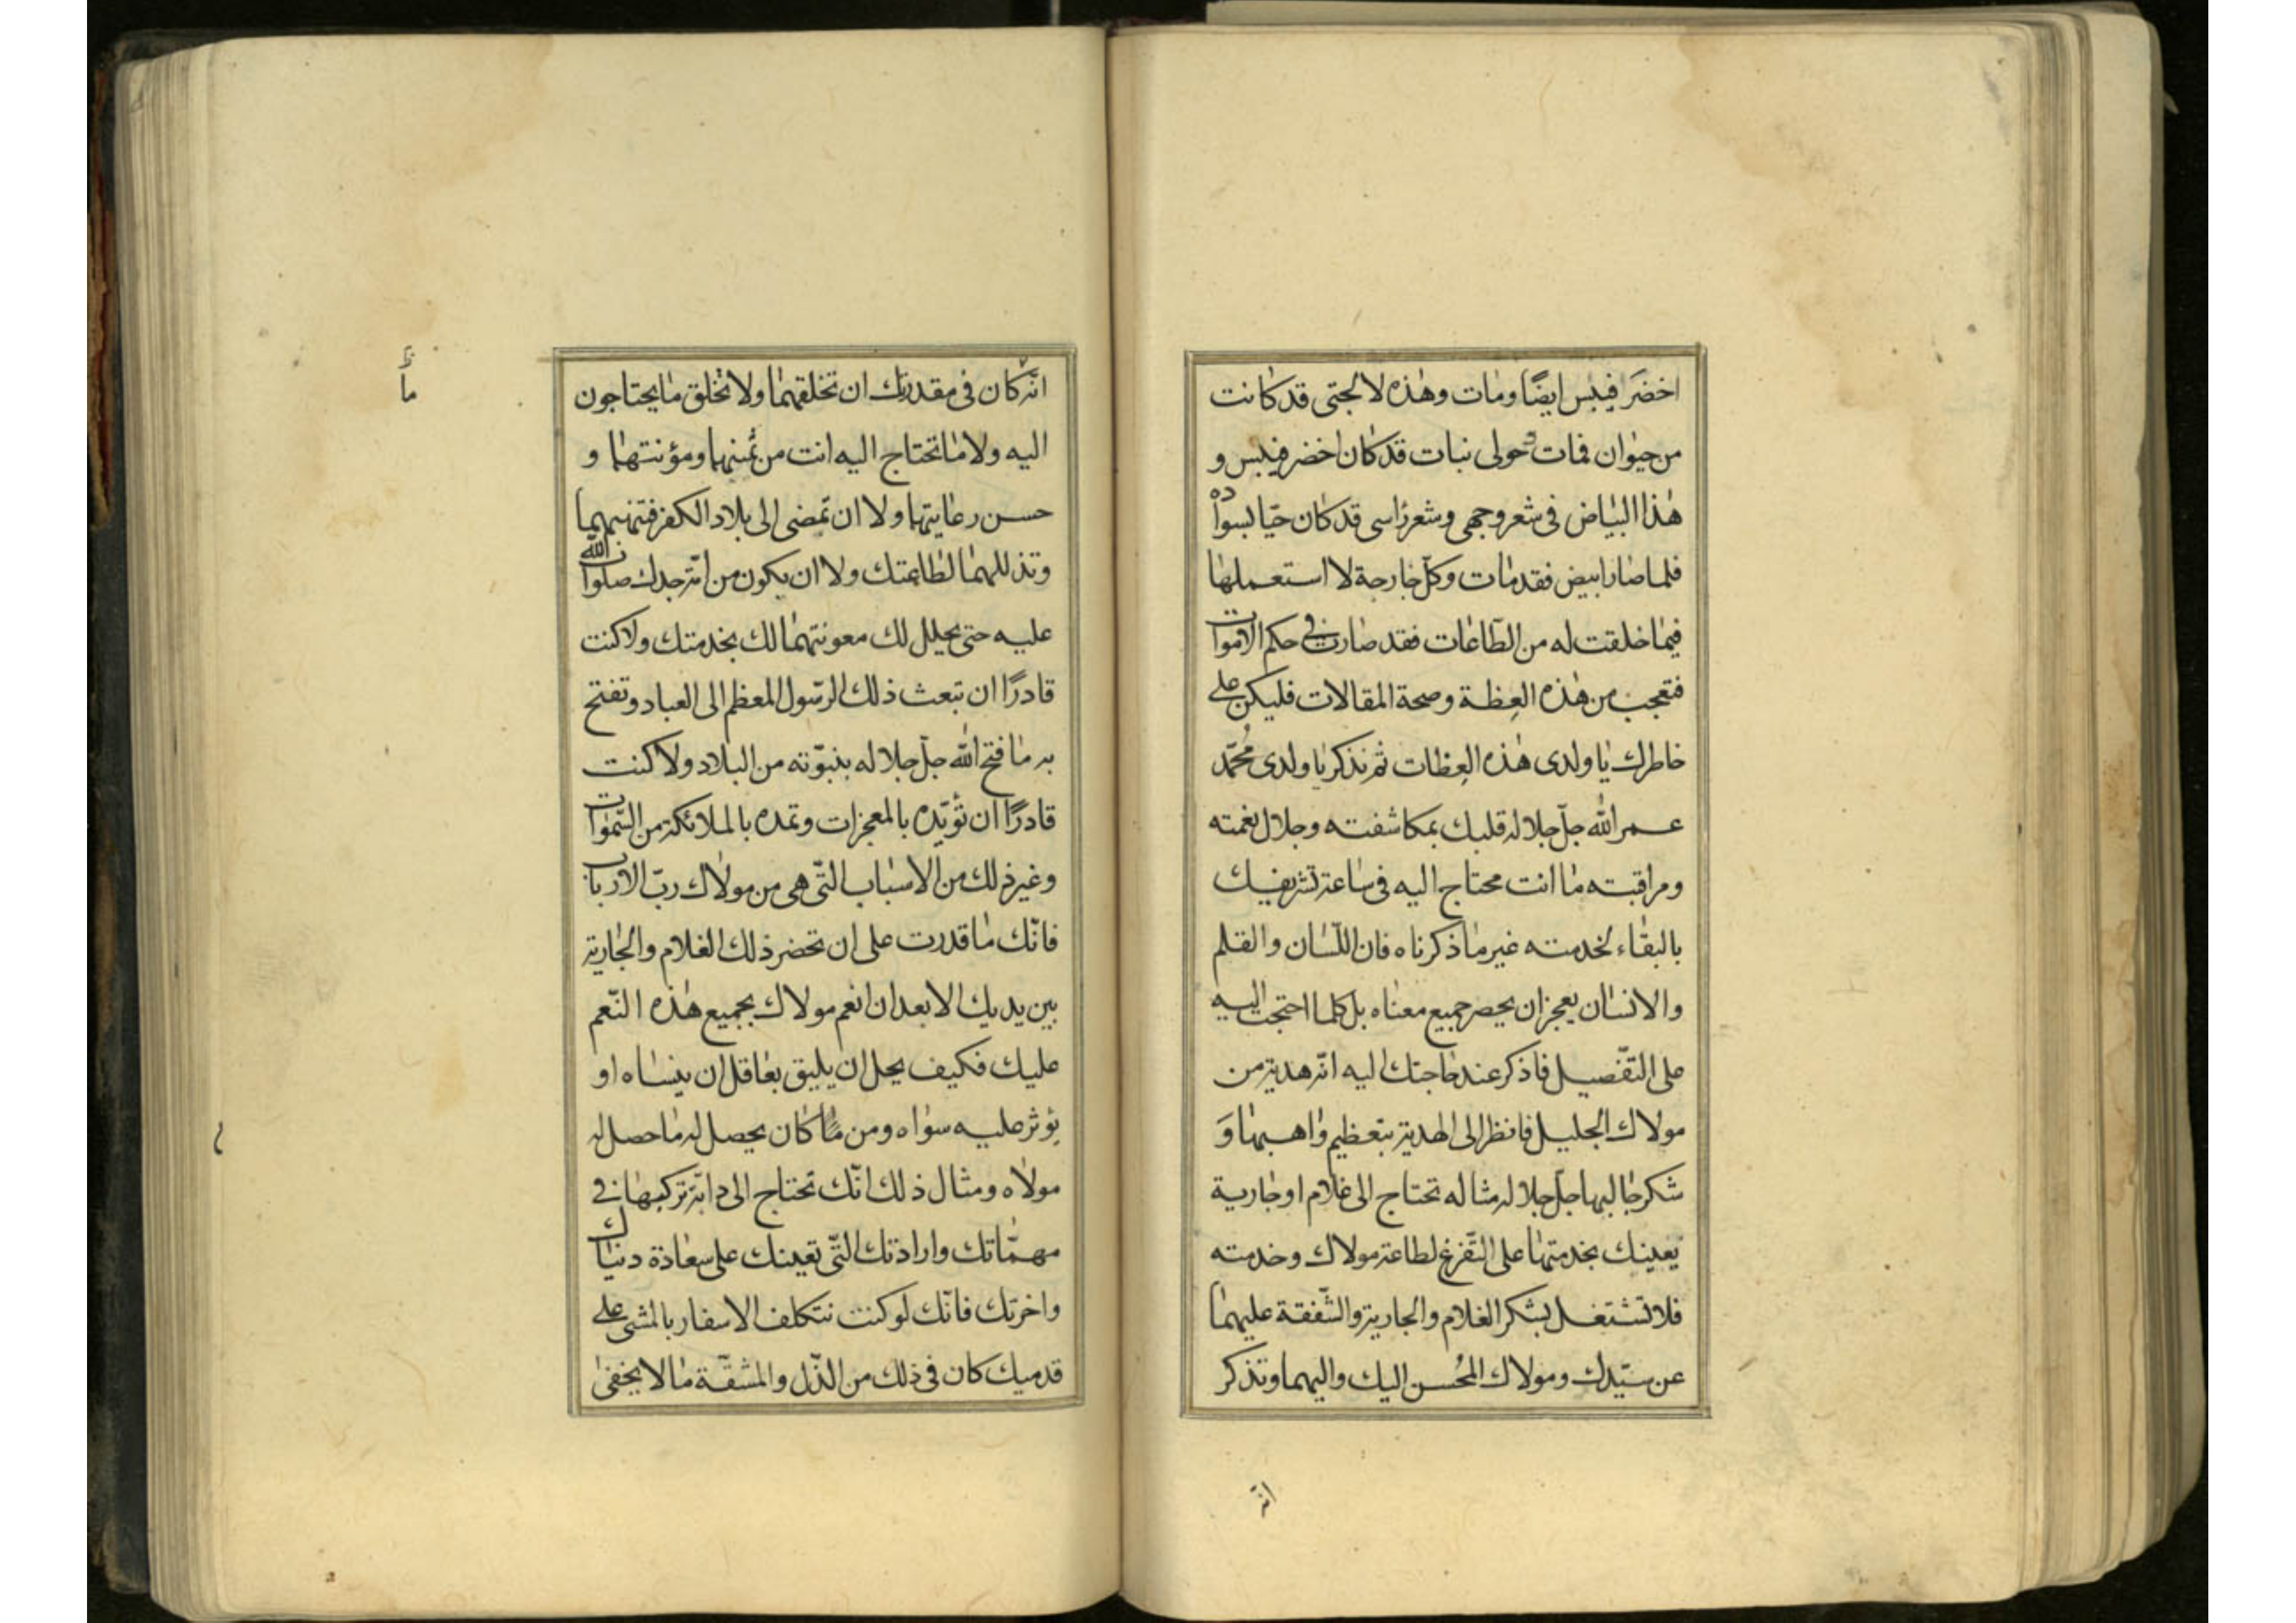 اخضَر فيبس ايضًا ومات وهذه لالجتى قد كانت
من حيوان فمات وحولى نبات قد كان اخضر فيبس و
هذا البياض فى شعر وجهى وشعر راسى قد كان حيّا بسواده
فلما صار ابيض فقد مات وكلّ جارحة لا استعملها
فيما خلقت له من الطّاعات فقد صارت فى حكم الاموات
فتعجب من هذه العِظة وصحة المقالات فليكن على
خاطرك يا ولدى هذه العِظات ثم تذكر يا ولدى محُمّد
عمر الله جلّ جلاله قلبك بمكاشفته وجلال نعمته
ومراقبته ما انت محتاج اليه فى ساعة تشريفك
بالبقاء لخدمته غير ما ذكرناه فان اللّسان والقلم
والانسان يعجز ان يحصر جميع معناه بل كلما احتجت اليه
على التفّصيل فاذكر عند حاجتك اليه انّه هدية من
مولاك الجليل فانظر الى الهدية بتعظيم واهبها وَ
شكر جالبها جلّ جلاله مثاله تحتاج الى غلام او جارية
يعينك بخدمتها على التّفرغ لطاعة مولاك وخدمته
فلا تشتغل بشكر الغلام والجارية والشّفقة عليهما
عن سيّدك ومولاك المحُسن اليك واليهما وتذكر
انّه
انّه كان فى مقدرتك ان تخلقهما ولا تخلق ما يحتاجون
اليه ولا ما تحتاج اليه انت من ثمنهما ومؤنتهما و
حسن رعايتهما ولا ان تمضى الى بلاد الكفر فتهنبهما
وتذللهما لطاعتك ولا ان يكون من امّة جدك صلوات الله
عليه حتى يحلل لك معونتهما لك بخدمتك ولا كنت
قادرًا ان تبعث ذلك الرّسول المعظم الى العباد وتفتح
به ما فتح الله جلّ جلاله بنبوّته من البلاد ولا كنت
قادرًا ان تؤيّده بالمعجزات وتمده بالملائكة من السّموات
وغير ذلك من الاسباب التّى هى من مولاك ربّ الارباب
فانّك ما قدرت على ان تحضر ذلك الغلام والجارية
بين يديك الا بعد ان انعم مولاك بجميع هذه النّعم
عليك فكيف يحل ان يليق بعاقل ان ينساه او
يؤثر عليه سواه ومن ما كان يحصل له ما حصل له
مولاه ومثال ذلك انّك تحتاج الى دابّة تركبها فى
مهمّاتك وارادتك التّى تعينك على سعادة دنياك
واخرتك فانّك لو كنت تتكلف الاسفار بالمشى على
قدميك كان فى ذلك من الذّل والمشقّة ما لا يخفى